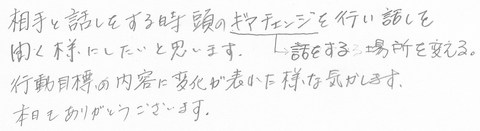 相手と話しをする時頭のギアチェンジを行い話しを
聞く様にしたいと思います。 →話をする場所を変える。
行動目標の内容に変化が表れた様な気がします。
本日もありがとうございます。